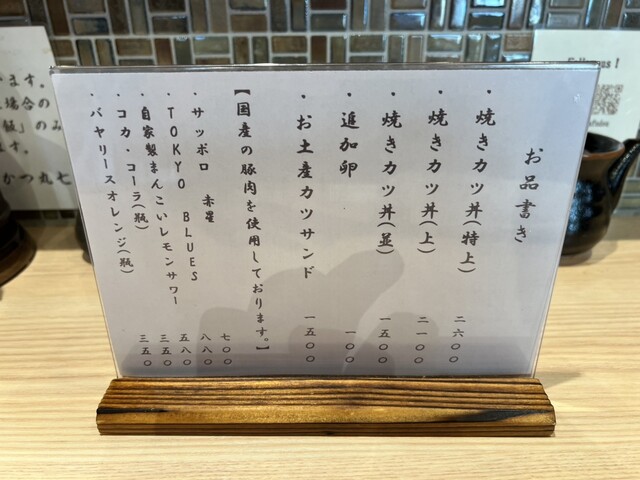 お品書き
・焼きカツ丼(特上) 二六〇〇
・焼きカツ丼(上) 二一〇〇
・焼きカツ丼(並) 一五〇〇
・追加卵 一〇〇
・お土産カツサンド 一五〇〇
【国産の豚肉を使用しております。】
・サッポロ 赤星 七〇〇
・TOKYO BLUES 八八〇
・自家製まんこいレモンサワー 五八〇
・コカ・コーラ(瓶) 三五〇
・バヤリースオレンジ(瓶) 三五〇
ます。
場合の
飯」のみ
ます。
かつ丸七